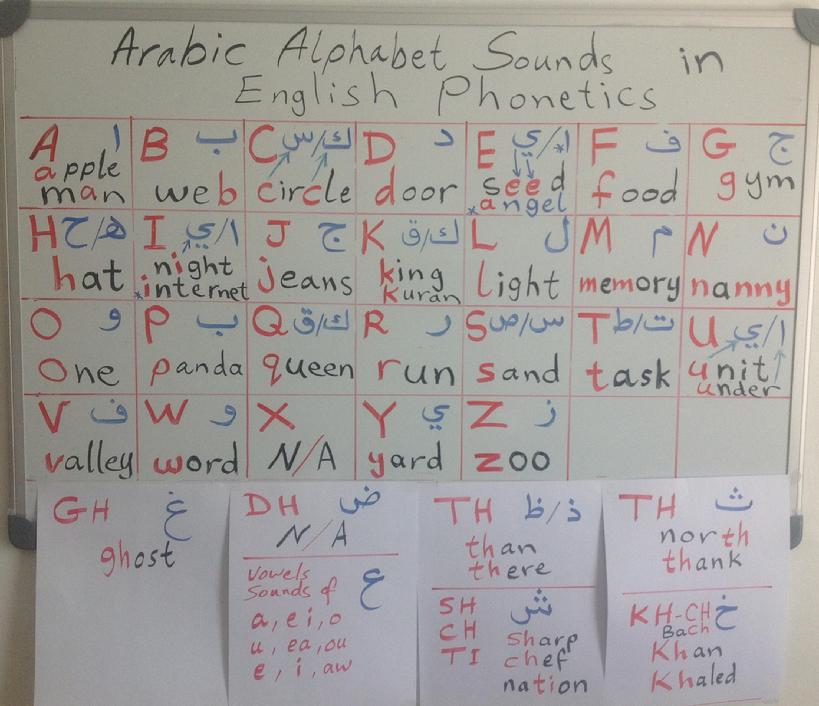 Arabic Alphabet Sounds in
English Phonetics
A ا
apple
man
B ب
web
C س/ك
circle
D د
door
E ي/ا*
seed
*angel
F ف
food
G ج
gym
H ح/ه
hat
I ي/ا
night
*internet
J ج
jeans
K ق/ك
king
Kuran
L ل
Light
M م
memory
N ن
nanny
O و
One
P ب
panda
Q ق/ك
queen
R ر
run
S ص/س
sand
T ط/ت
task
U ي/ا
unit
under
V ف
valley
W و
word
X
N/A
Y ي
yard
Z ز
zoo
GH غ
ghost
DH ض
N/A
Vowels
Sounds of ع
a, e i, o
u, ea, ou
e, i, aw
TH ظ/ذ
than
there
TH ث
north
thank
SH ش
CH Sharp
TI chef
nation
KH-CH خ
Bach
Khan
Khaled